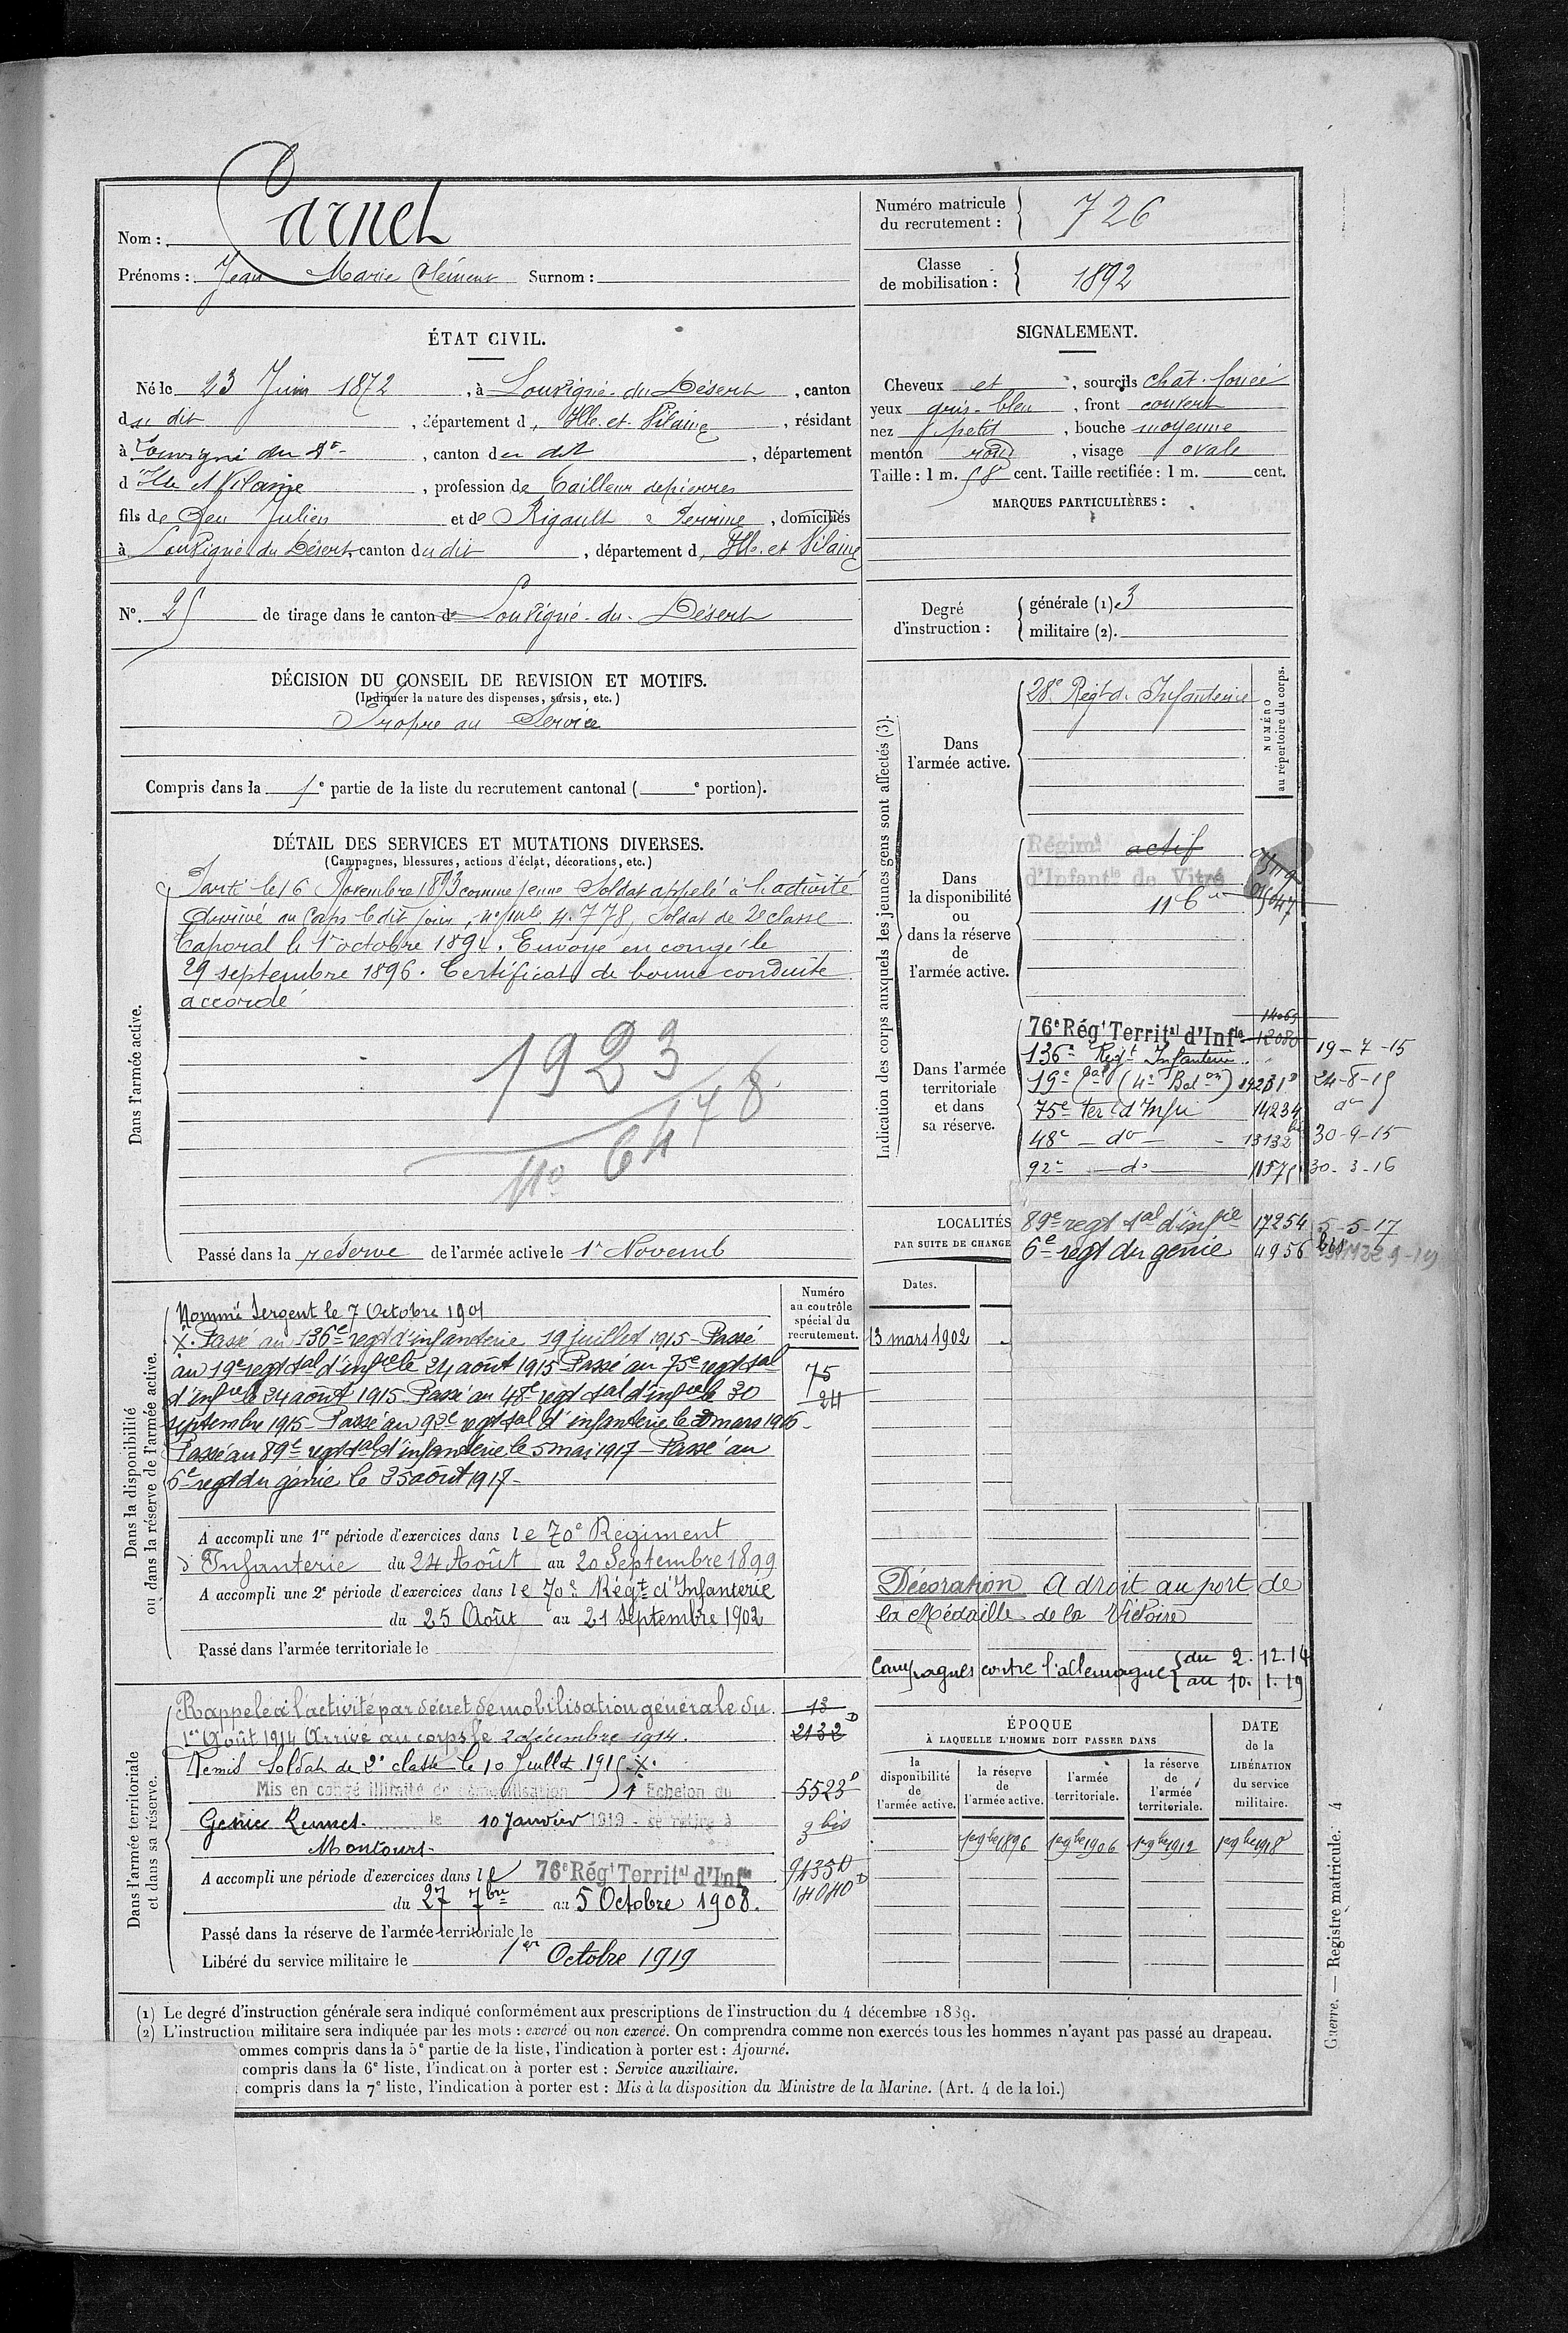 Nom : Carnet
Prénoms : Jean Marie Clément Surnom :
Numéro matricule du recrutement : 726
Classe de mobilisation : 1892
ÉTAT CIVIL.
Né le 23 Juin 1872, à Louvigné-du-Désert, canton
du dit, département d'Ille-et-Vilaine, résidant
à Louvigné du Dt, canton du dit, département
d'Ille et Vilaine, profession de Tailleur de pierres
fils de feu Julien et de Rigault Perrine, domiciliés
à Louvigné du Désert, canton du dit, département d'Ille-et-Vilaine
N° 25 de tirage dans le canton de Louvigné-du-Désert
SIGNALEMENT.
Cheveux et, sourcils chat. foncé
yeux gris-bleu, front couvert
nez petit, bouche moyenne
menton rond, visage ovale
Taille : 1 m. 58 cent. Taille rectifiée : 1 m. cent.
MARQUES PARTICULIÈRES :
Degré d'instruction :
générale (1) 3
militaire (2).
DÉCISION DU CONSEIL DE REVISION ET MOTIFS.
(Indiquer la nature des dispenses, sursis, etc.)
Propre au Service
Compris dans la 1e partie de la liste du recrutement cantonal ( e portion).
DÉTAIL DES SERVICES ET MUTATIONS DIVERSES.
(Campagnes, blessures, actions d'éclat, décorations, etc.)
Dans l'armée active.
Parti le 16 Novembre 1893 comme jeune Soldat appelé à l'activité
Arrivé au Corps le dit jour, no mle 4.778, Soldat de 2e classe
Caporal le 1er octobre 1894. Envoyé en congé le
29 septembre 1896. Certificat de bonne conduite
accordé
1923
No 6478
Passé dans la réserve de l'armée active le 1er Novemb
Indication des corps auxquels les jeunes gens sont affectés (3).
NUMÉRO au répertoire du corps.
Dans l'armée active.
28e Régt d'Infanterie
Dans la disponibilité ou dans la réserve de l'armée active.
Régimt actif
d'Infantie de Vitré
Dans l'armée territoriale et dans sa réserve.
14069
76e Régt Territal d'Infie 12080
136e Régt Infanterie 19-7-15
19e tal (4e Bat on) 14231 D 24-8-15
75e Ter d'Infie 14234 do
48e - do - 13132 30-9-15
92e - do - 11575 30-3-16
89e regt tal d'infie 17254 5-5-17
6e regt du génie 4956 bis
LOCALITÉS
PAR SUITE DE CHANGE
Dates.
13 mars 1902
Dans la disponibilité ou dans la réserve de l'armée active.
Numéro au contrôle spécial du recrutement.
75
24
Nommé Sergent le 7 Octobre 1901
X. Passé au 136e regt d'infanterie 19 juillet 1915 - Passé
au 19e regt tal d'infie le 24 août 1915 - Passé au 75e regt tal
d'infie le 24 août 1915 - Passé au 48e regt tal d'infie le 30
septembre 1915 - Passé au 92e regt tal d'infanterie le 30 mars 1916 -
Passé au 89e regt tal d'infanterie le 5 mai 1917 - Passé au
6e regt du génie le 25 août 1917 -
A accompli une 1re période d'exercices dans le 70e Régiment
d'Infanterie du 24 Août au 20 Septembre 1899
A accompli une 2e période d'exercices dans le 70e Régt d'Infanterie
du 25 Août au 21 Septembre 1902
Passé dans l'armée territoriale le
Décoration A droit au port de
la Médaille de la Victoire
Campagnes contre l'allemagne { du 2.12.14
au 10.1.19
Dans l'armée territoriale et dans sa réserve.
Rappelé à l'activité par décret de mobilisation générale du
1er Août 1914 Arrivé au corps le 2 décembre 1914.
Remis Soldat de 2e classe le 10 Juillet 1915. X.
Mis en congé illimité de démobilisation 1 Echelon du
Génie Rennes. le 10 Janvier 1919 - se retire à
Montours -
A accompli une période d'exercices dans le 76e Régt Territal d'Infie
du 27 7bre au 5 Octobre 1908.
Passé dans la réserve de l'armée territoriale le
Libéré du service militaire le 1er Octobre 1919
13
2132 D
5523 D
3 bis
9435 D
14040 D
ÉPOQUE
À LAQUELLE L'HOMME DOIT PASSER DANS
la disponibilité de l'armée active.
la réserve de l'armée active.
l'armée territoriale.
la réserve de l'armée territoriale.
DATE de la LIBÉRATION du service militaire.
1er 9bre 1896
1er 9bre 1906
1er 9bre 1912
1er 9bre 1918
(1) Le degré d'instruction générale sera indiqué conformément aux prescriptions de l'instruction du 4 décembre 1889.
(2) L'instruction militaire sera indiquée par les mots : exercé ou non exercé. On comprendra comme non exercés tous les hommes n'ayant pas passé au drapeau.
ommes compris dans la 5e partie de la liste, l'indication à porter est : Ajourné.
compris dans la 6e liste, l'indication à porter est : Service auxiliaire.
compris dans la 7e liste, l'indication à porter est : Mis à la disposition du Ministre de la Marine. (Art. 4 de la loi.)
Guerre. — Registre matricule. 4